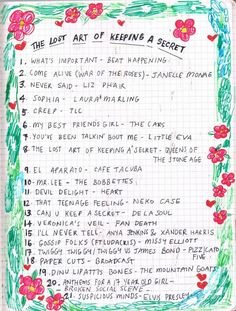 THE LOST ART OF KEEPING A SECRET
1. WHAT'S IMPORTANT - BEAT HAPPENING
2. COME ALIVE (WAR OF THE ROSES) - JANELLE MONAE
3. NEVER SAID - LIZ PHAIR
4. SOPHIA - LAURA MARLING
5. CREEP - TLC
6. MY BEST FRIEND'S GIRL - THE CARS
7. YOU'VE BEEN TALKIN' BOUT ME - LITTLE EVA
8. THE LOST ART OF KEEPING A SECRET - QUEENS OF
THE STONE AGE
9. EL APARATO - CAFE TACUBA
10. MR. LEE - THE BOBBETTES
11. DEVIL DELIGHT - HEART
12. THAT TEENAGE FEELING - NEKO CASE
13. CAN U KEEP A SECRET - DE LA SOUL
14. VERONICA'S VEIL - FAN DEATH
15. I'LL NEVER TELL - ANYA JENKINS & XANDER HARRIS
16. GOSSIP FOLKS (FT LUDACRIS) - MISSY ELLIOTT
17. TWIGGY TWIGGY/TWIGGY VS JAMES BOND - PIZZICATO
FIVE
18. PAPER CUTS - BROADCAST
19. DINU LIPATTI'S BONES - THE MOUNTAIN GOATS
20. ANTHEMS FOR A 17 YEAR OLD GIRL -
BROKEN SOCIAL SCENE
21. SUSPICIOUS MINDS - ELVIS PRESLEY